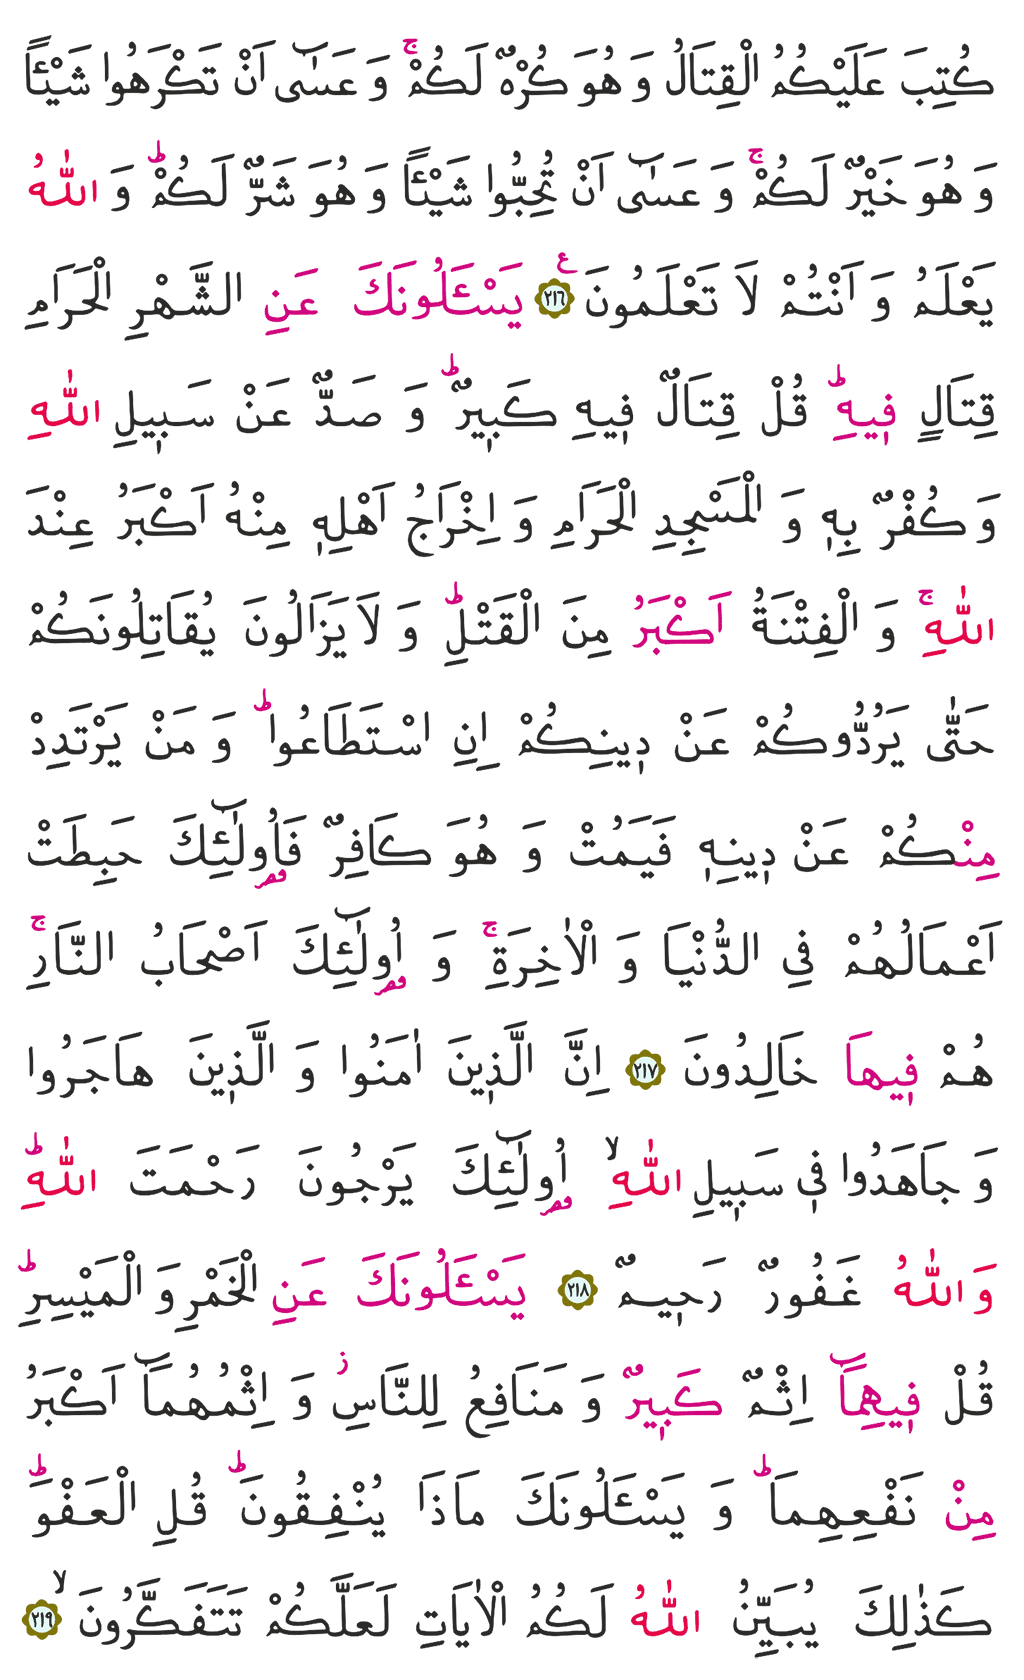 كُتِبَ عَلَيْكُمُ الْقِتَالُ وَ هُوَ كُرْهٌ لَكُمْۚ وَ عَسٰٓى اَنْ تَكْرَهُوا شَيْـًٔا
وَ هُوَ خَيْرٌ لَكُمْۚ وَ عَسٰٓى اَنْ تُحِبُّوا شَيْـًٔا وَ هُوَ شَرٌّ لَكُمْؕ وَ اللّٰهُ
يَعْلَمُ وَ اَنْتُمْ لَا تَعْلَمُونَ ﴿٢١٦﴾ ع يَسْـَٔلُونَكَ عَنِ الشَّهْرِ الْحَرَامِ
قِتَالٍ فٖيهِؕ قُلْ قِتَالٌ فٖيهِ كَبٖيرٌؕ وَ صَدٌّ عَنْ سَبٖيلِ اللّٰهِ
وَ كُفْرٌ بِهٖ وَ الْمَسْجِدِ الْحَرَامِ وَ اِخْرَاجُ اَهْلِهٖ مِنْهُ اَكْبَرُ عِنْدَ
اللّٰهِۚ وَ الْفِتْنَةُ اَكْبَرُ مِنَ الْقَتْلِؕ وَ لَا يَزَالُونَ يُقَاتِلُونَكُمْ
حَتّٰى يَرُدُّوكُمْ عَنْ دٖينِكُمْ اِنِ اسْتَطَاعُواؕ وَ مَنْ يَرْتَدِدْ
مِنْكُمْ عَنْ دٖينِهٖ فَيَمُتْ وَ هُوَ كَافِرٌ فَاُولٰٓئِكَ قصر حَبِطَتْ
اَعْمَالُهُمْ فِي الدُّنْيَا وَ الْاٰخِرَةِۚ وَ اُولٰٓئِكَ قصر اَصْحَابُ النَّارِۚ
هُمْ فٖيهَا خَالِدُونَ ﴿٢١٧﴾ اِنَّ الَّذٖينَ اٰمَنُوا وَ الَّذٖينَ هَاجَرُوا
وَ جَاهَدُوا فٖي سَبٖيلِ اللّٰهِۙ اُولٰٓئِكَ قصر يَرْجُونَ رَحْمَتَ اللّٰهِؕ
وَ اللّٰهُ غَفُورٌ رَحٖيمٌ ﴿٢١٨﴾ يَسْـَٔلُونَكَ عَنِ الْخَمْرِ وَ الْمَيْسِرِؕ
قُلْ فٖيهِمَٓا اِثْمٌ كَبٖيرٌ وَ مَنَافِعُ لِلنَّاسِؗ وَ اِثْمُهُمَٓا اَكْبَرُ
مِنْ نَفْعِهِمَاؕ وَ يَسْـَٔلُونَكَ مَاذَا يُنْفِقُونَؕ قُلِ الْعَفْوَؕ
كَذٰلِكَ يُبَيِّنُ اللّٰهُ لَكُمُ الْاٰيَاتِ لَعَلَّكُمْ تَتَفَكَّرُونَۙ ﴿٢١٩﴾